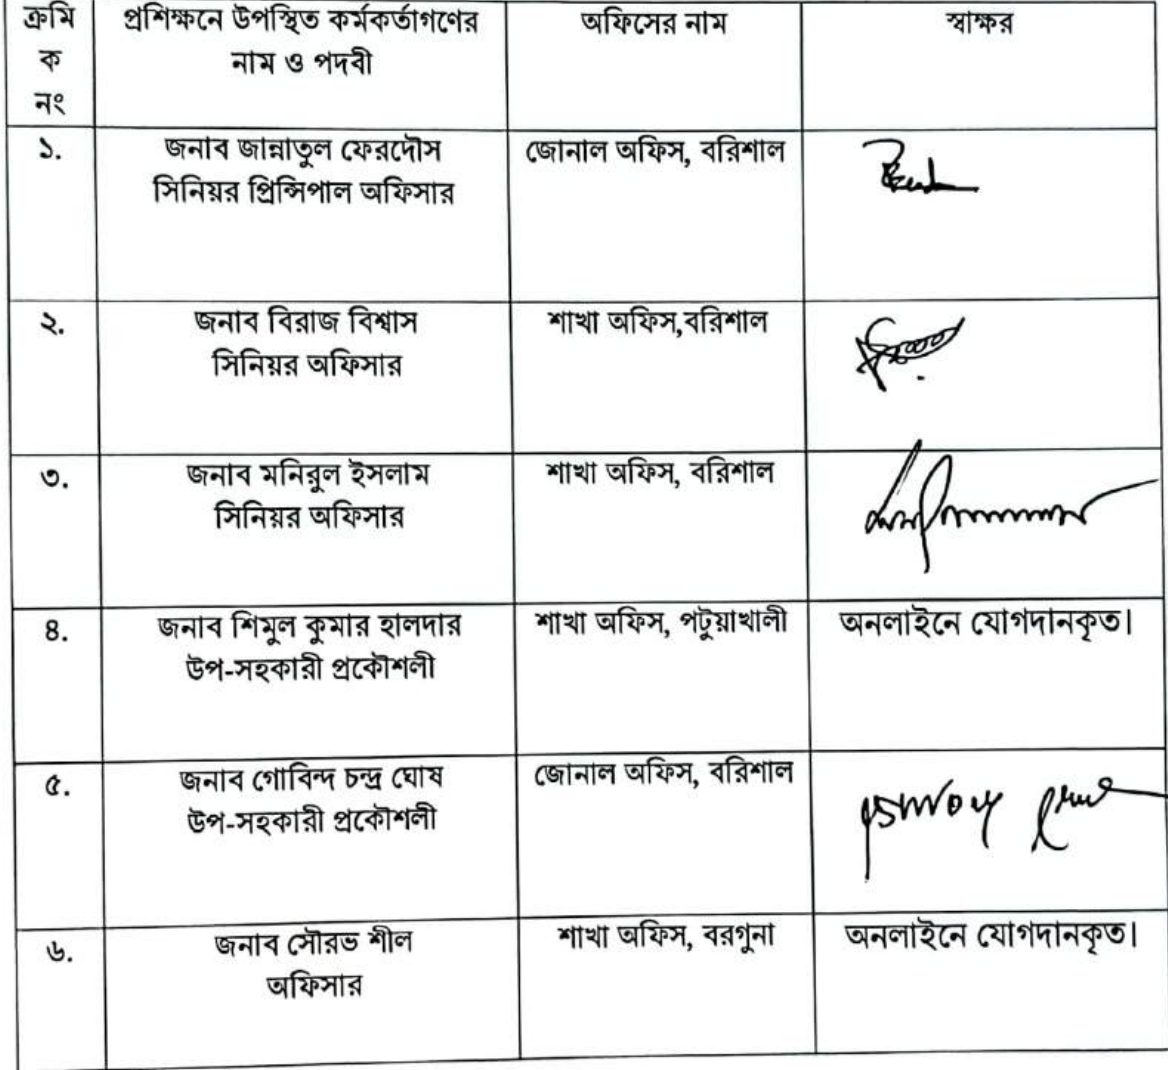 ক্রমি
ক
নং
প্রশিক্ষনে উপস্থিত কর্মকর্তাগণের
নাম ও পদবী
অফিসের নাম
স্বাক্ষর
১.
জনাব জান্নাতুল ফেরদৌস
সিনিয়র প্রিন্সিপাল অফিসার
জোনাল অফিস, বরিশাল
২.
জনাব বিরাজ বিশ্বাস
সিনিয়র অফিসার
শাখা অফিস,বরিশাল
৩.
জনাব মনিরুল ইসলাম
সিনিয়র অফিসার
শাখা অফিস, বরিশাল
৪.
জনাব শিমুল কুমার হালদার
উপ-সহকারী প্রকৌশলী
শাখা অফিস, পটুয়াখালী
অনলাইনে যোগদানকৃত।
৫.
জনাব গোবিন্দ চন্দ্র ঘোষ
উপ-সহকারী প্রকৌশলী
জোনাল অফিস, বরিশাল
৬.
জনাব সৌরভ শীল
অফিসার
শাখা অফিস, বরগুনা
অনলাইনে যোগদানকৃত।